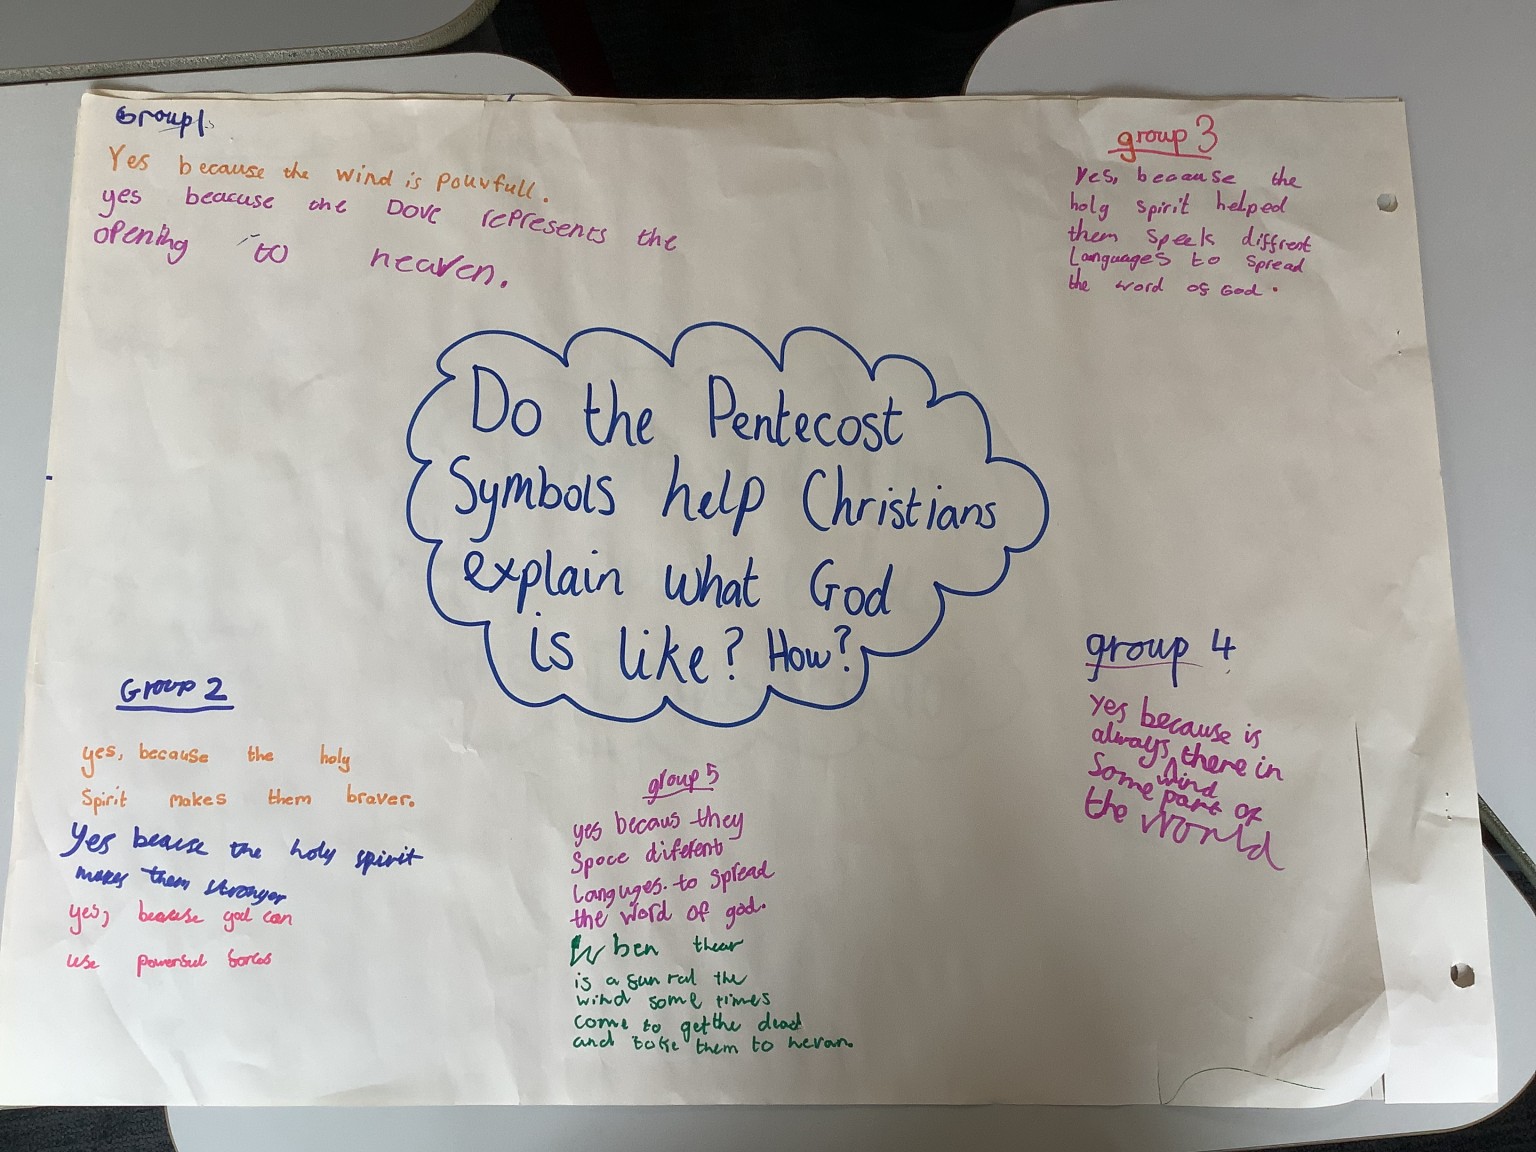 Group 1.
Yes because the wind is pouvfull.
yes beacuse the Dove represents the
opening to heaven.
group 3
Yes, because the
holy spirit helped
them speek diffrent
languages to spread
the word of God.
Do the Pentecost
Symbols help Christians
explain what God
is like? How?
Group 2
yes, because the holy
Spirit makes them braver.
Yes beause the holy spirit
makes them stronger
yes, beause god can
use powerful forces
group 4
Yes because is
always there in
wind
Some part of
the world
group 5
yes becaus they
Spoce diferent
Languges. to spread
the word of god.
When thear
is a fun ral the
wind some times
come to get the dead
and take them to hevan.